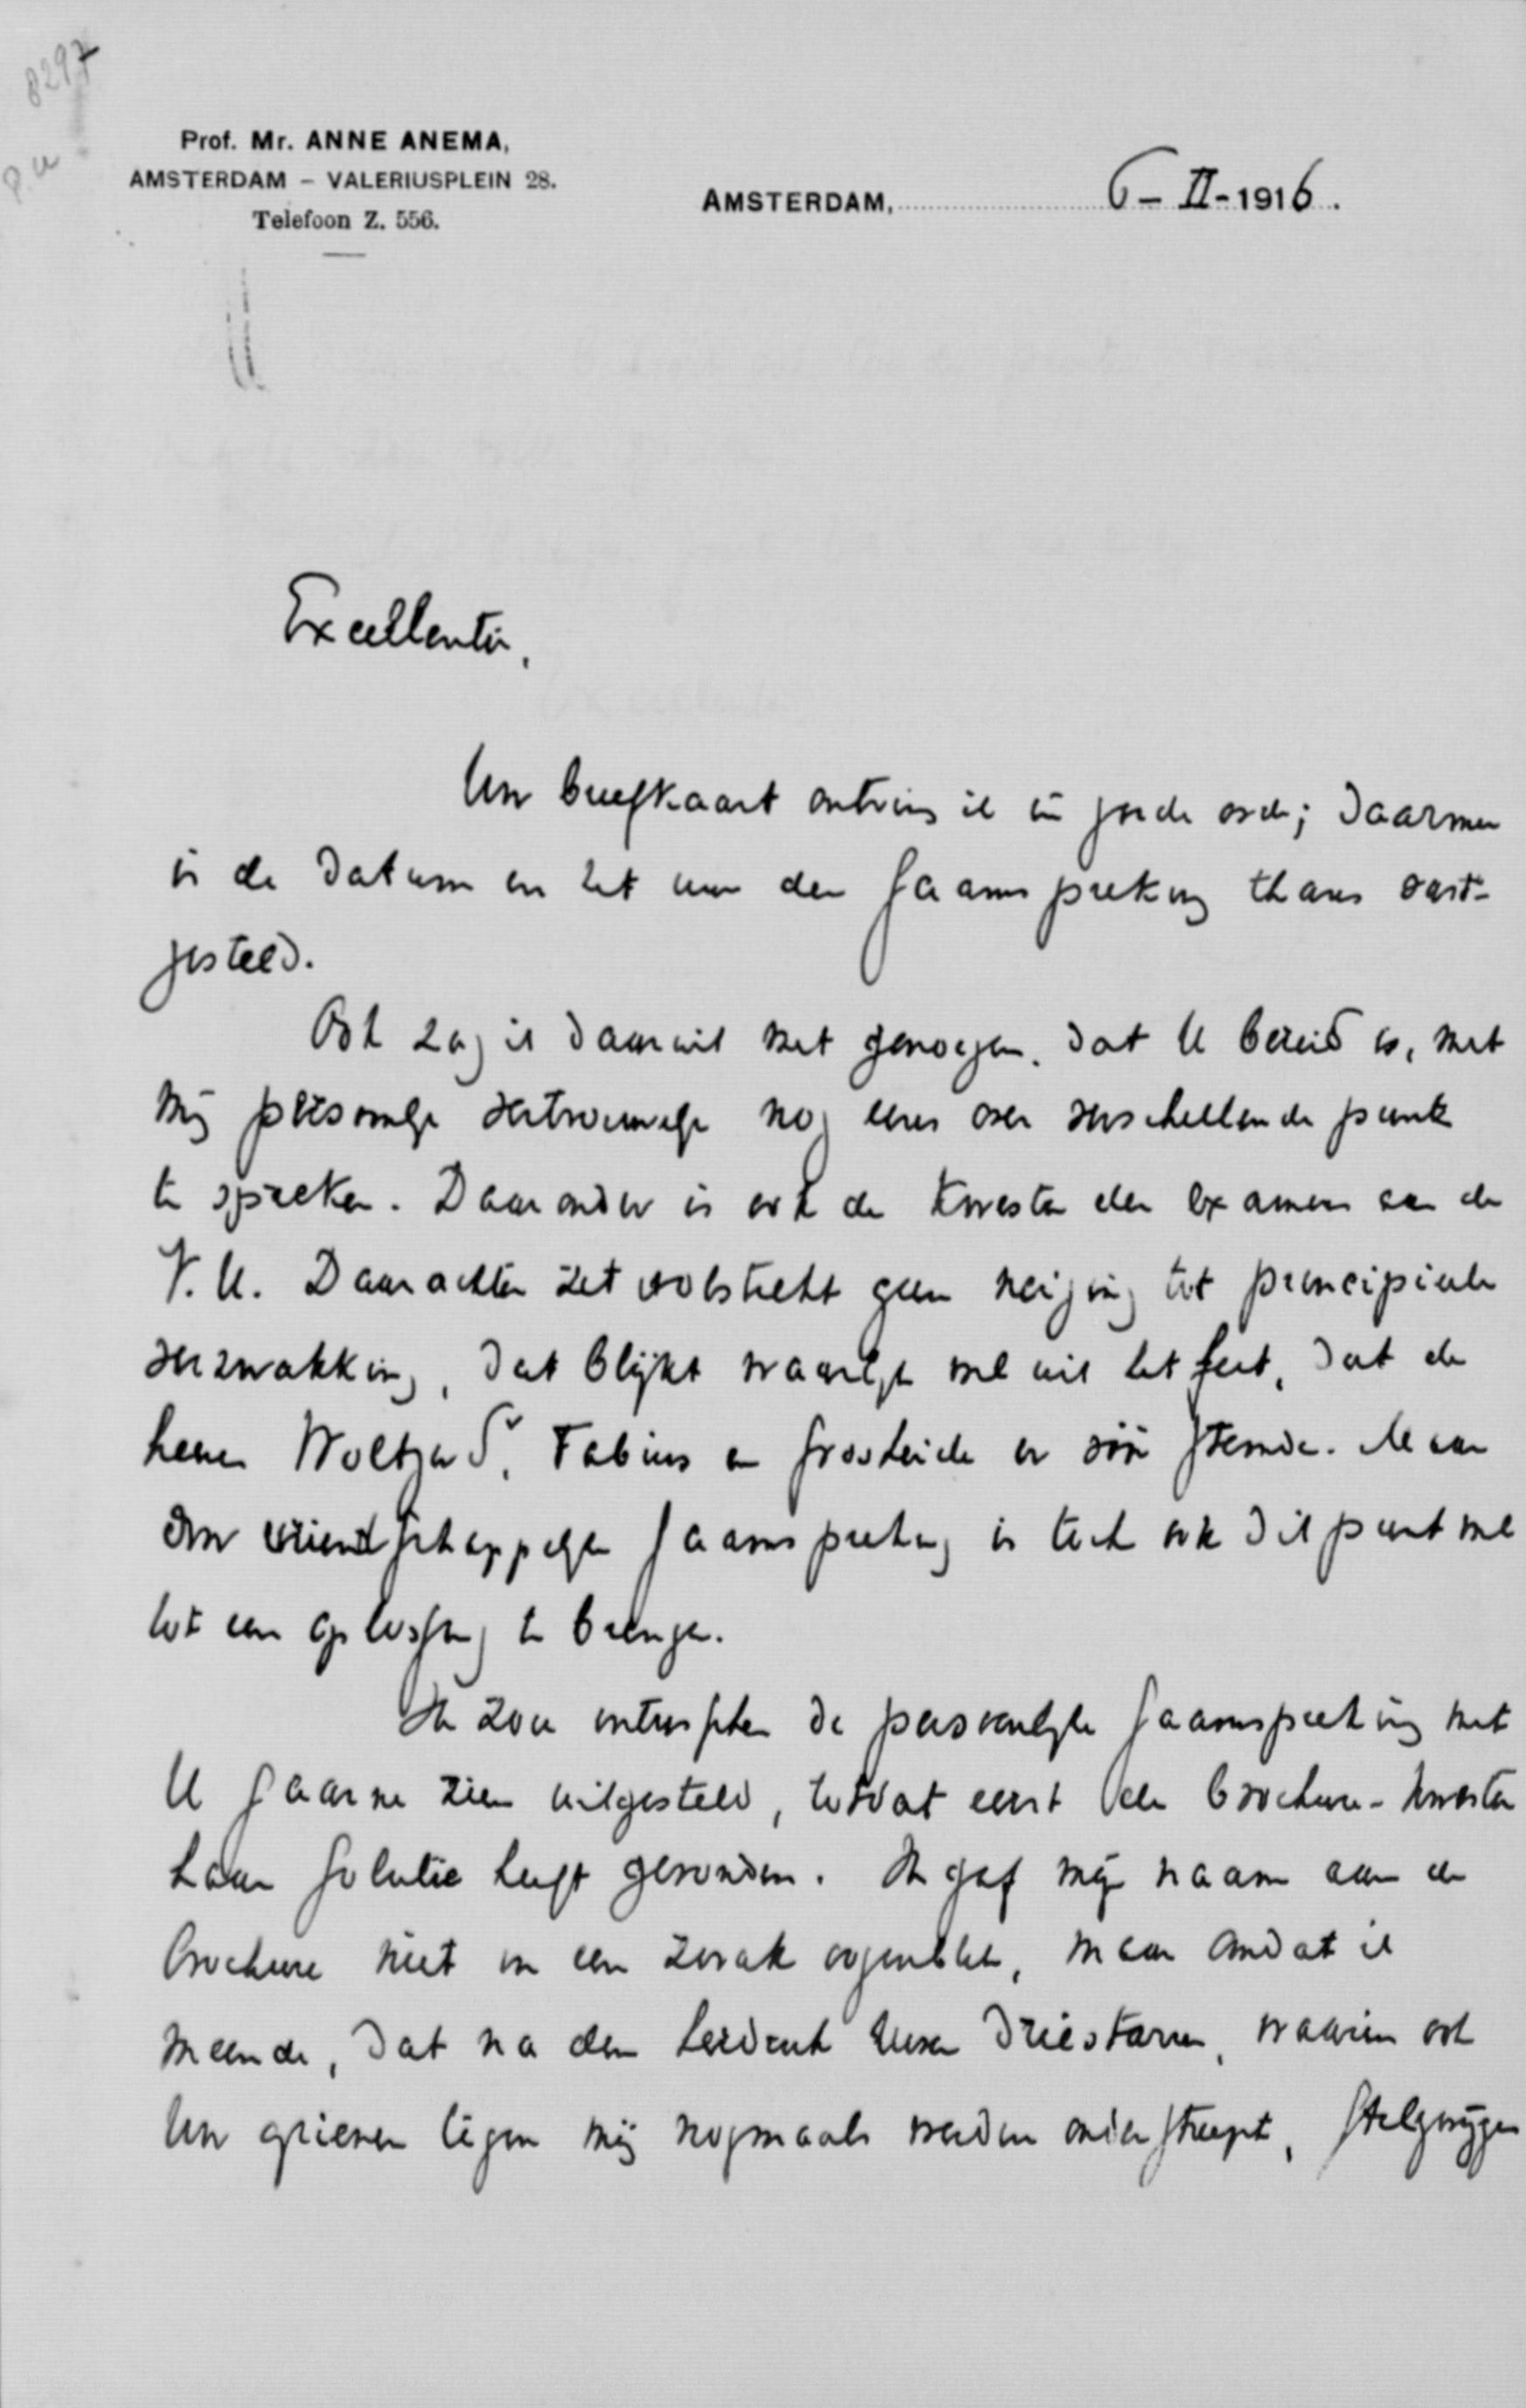 8297
Prof. Mr. ANNE ANEMA,
AMSTERDAM – VALERIUSPLEIN 28.
Telefoon Z. 556.
AMSTERDAM, 6 – II – 1916.
Excellentie,
Uw briefkaart ontving ik in goede orde; daarmee
is de datum en het uur der saamspreking thans vast-
gesteld.
Ook zag ik daaruit met genoegen, dat U bereid is, met
mij persoonlijk vertrouwelijk nog eens over verschillende punten
te spreken. Daaronder is ook de kwestie der examens aan de
V.U. Daarachter zit volstrekt geen neiging tot principieele
verzwakking, dat blijkt waarlijk wel uit het feit, dat de
heeren Woltjer Sr., Fabius en Grosheide er vóór stemden. Maar
door vriendschappelijke saamspreking is toch ook dit punt wel
tot een oplossing te brengen.
Ik zou intusschen de persoonlijke saamspreking met
U gaarne zien uitgesteld, totdat eerst de brochure-kwestie
haar solutie heeft gevonden. Ik gaf mijn naam aan de
brochure niet in een zwak oogenblik, maar omdat ik
meende, dat na den herdruk Uwer driestarren, waarin ook
Uw grieven tegen mij nogmaals werden onderstreept, stilzwijgen